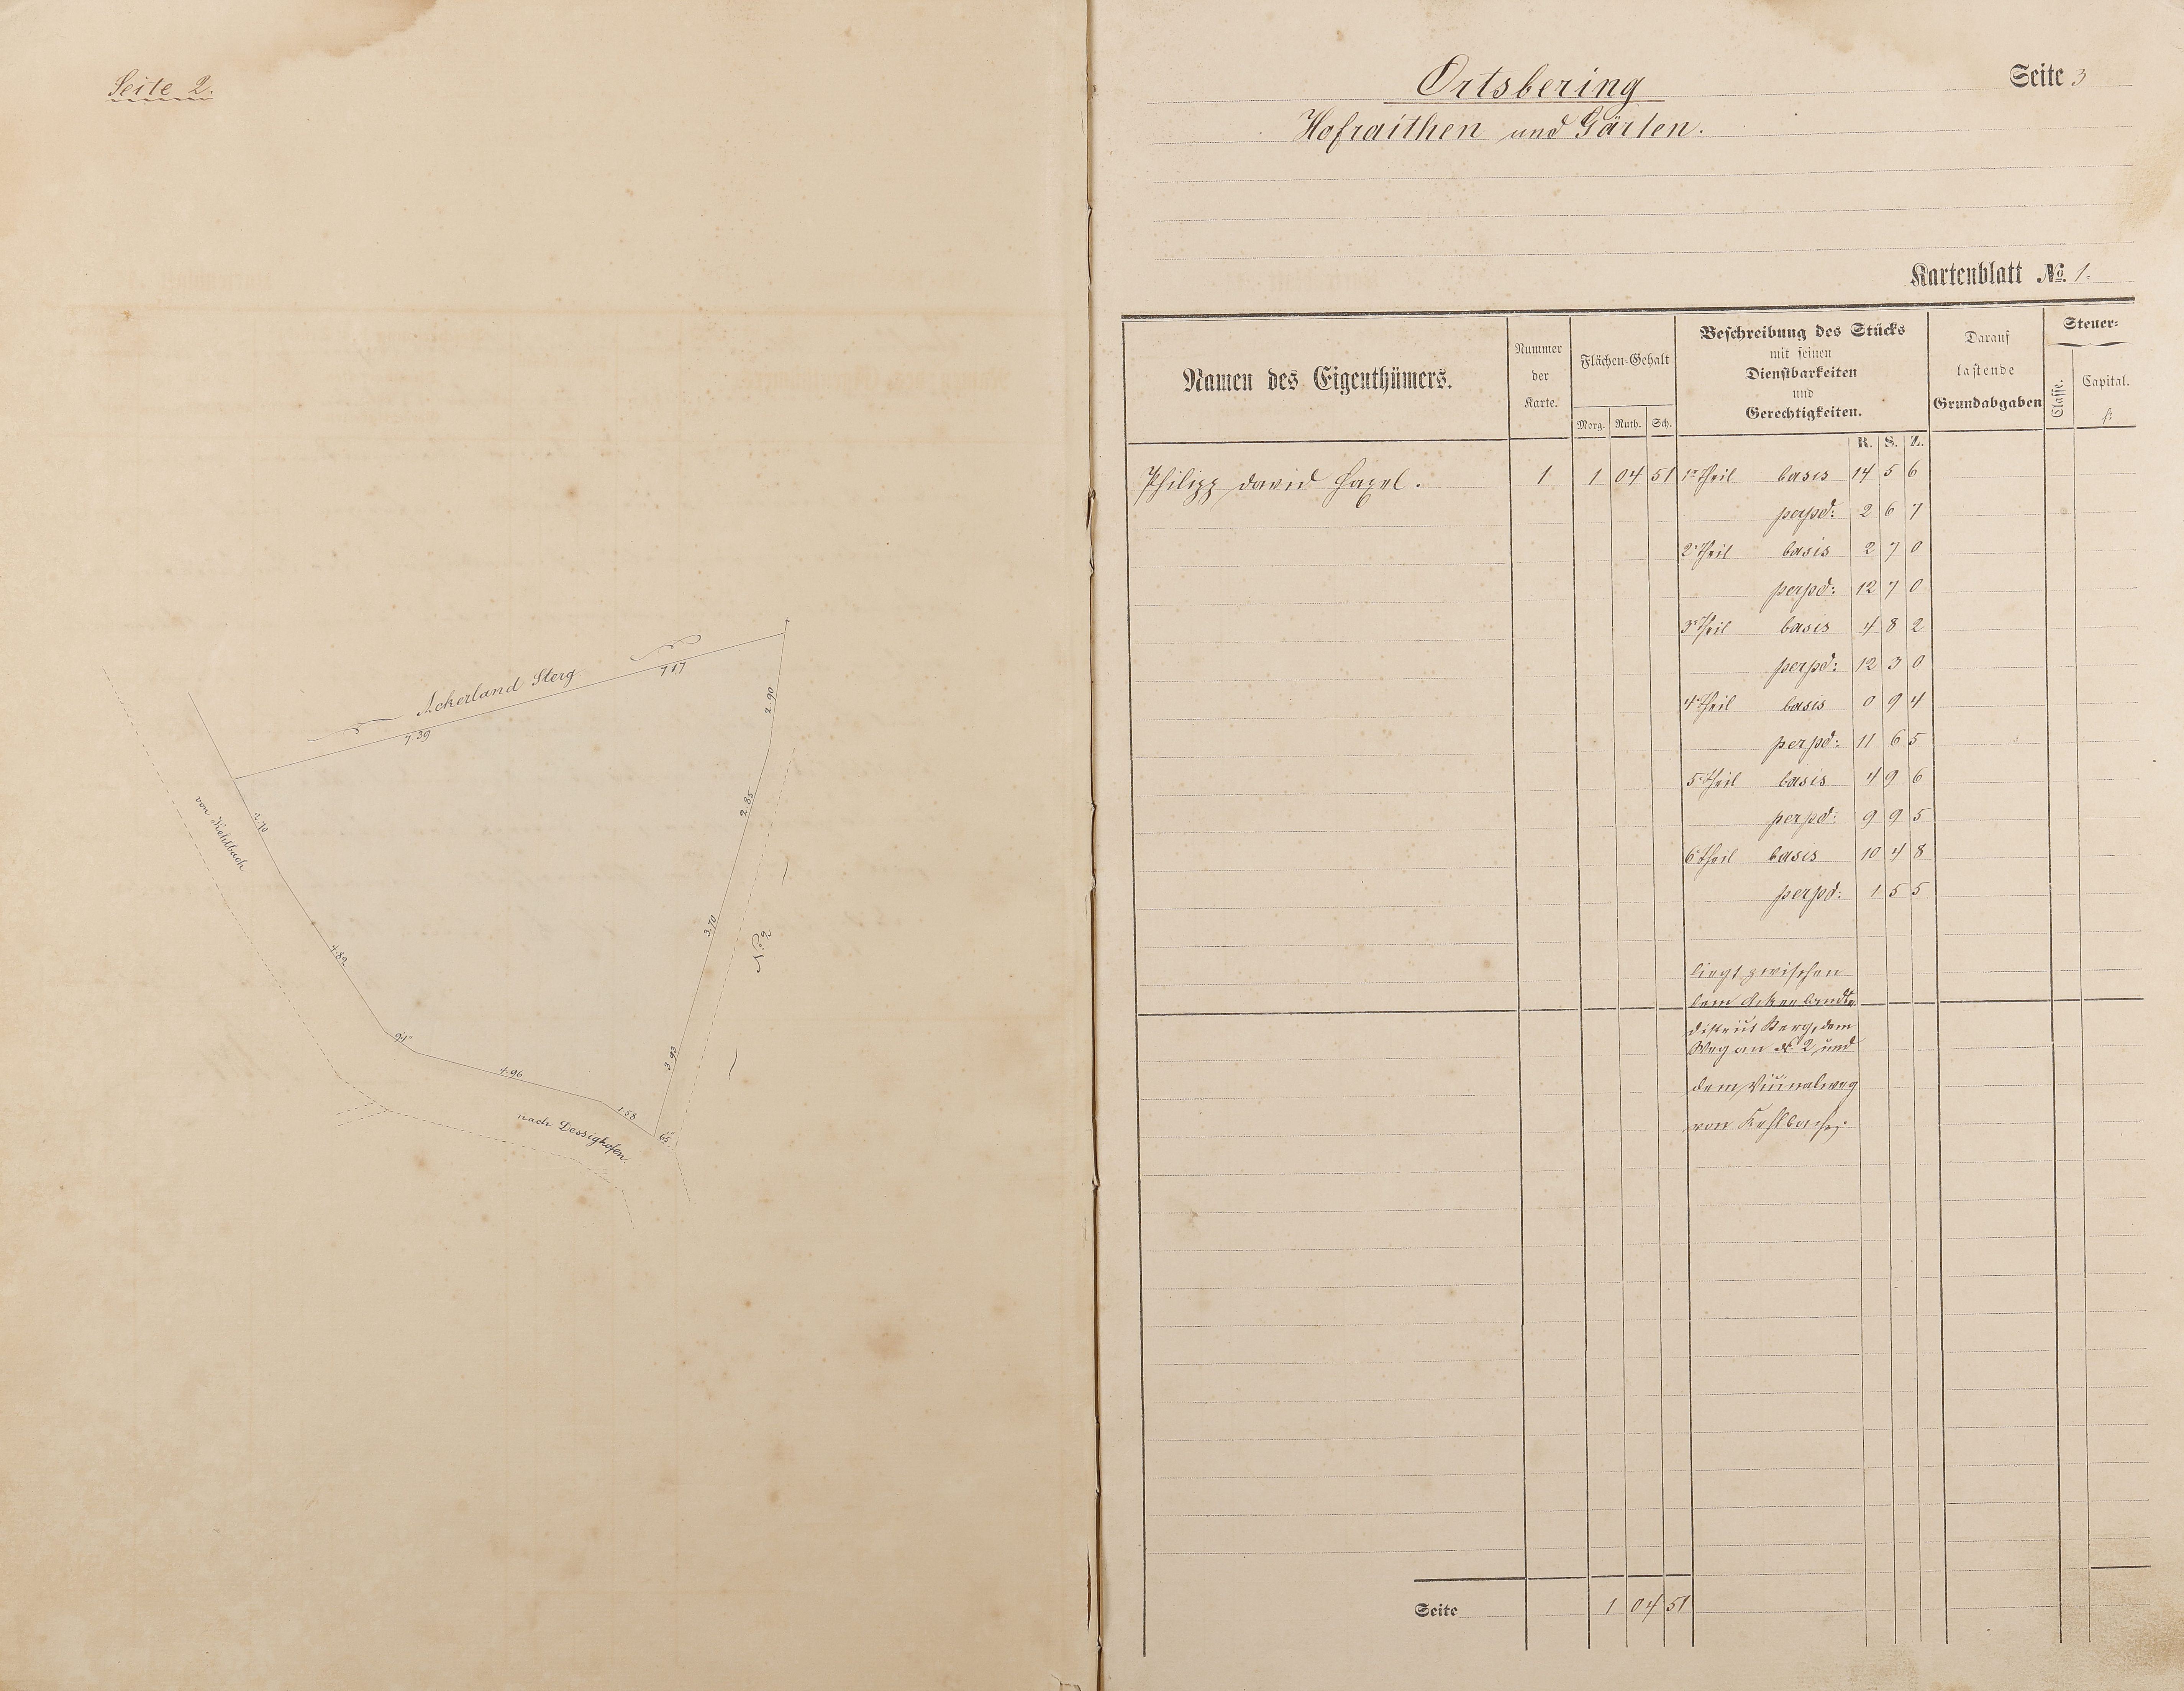 Seite 2.
Ackerland Sterg
7.17
7.39
2.90
2.85
3.70
3.93
2.70
4.82
94"
4.96
1.58
65"
von Kehlbach
nach Dessighofen.
No. 2
Ortsbering
Seite 3
Hofraithen und Gärten.
Kartenblatt No. 1.
Namen des Eigenthümers.
Nummer der Karte.
Flächen-Gehalt
Morg. Ruth. Sch.
Beschreibung des Stücks
mit seinen
Dienstbarkeiten
und
Gerechtigkeiten.
Darauf
lastende
Grundabgaben
Steuer-
Classe.
Capital.
f:
R. S. Z.
Philipp David 1 1 04 51 1r Theil basis 14 5 6
perpd: 2 6 7
2r Theil basis 2 7 0
perpd: 12 7 0
3r Theil basis 4 8 2
perpd: 12 3 0
4r Theil basis 0 9 4
perpd: 11 6 5
5r Theil basis 4 9 6
perpd: 9 9 5
6r Theil basis 10 4 8
perpd: 1 5 5
liegt zwischen
dem Ackerland
District Sterg, dem
Weg an No 2 und
dem Vicinalweg
von Kehlbach.
Seite 1 04 51